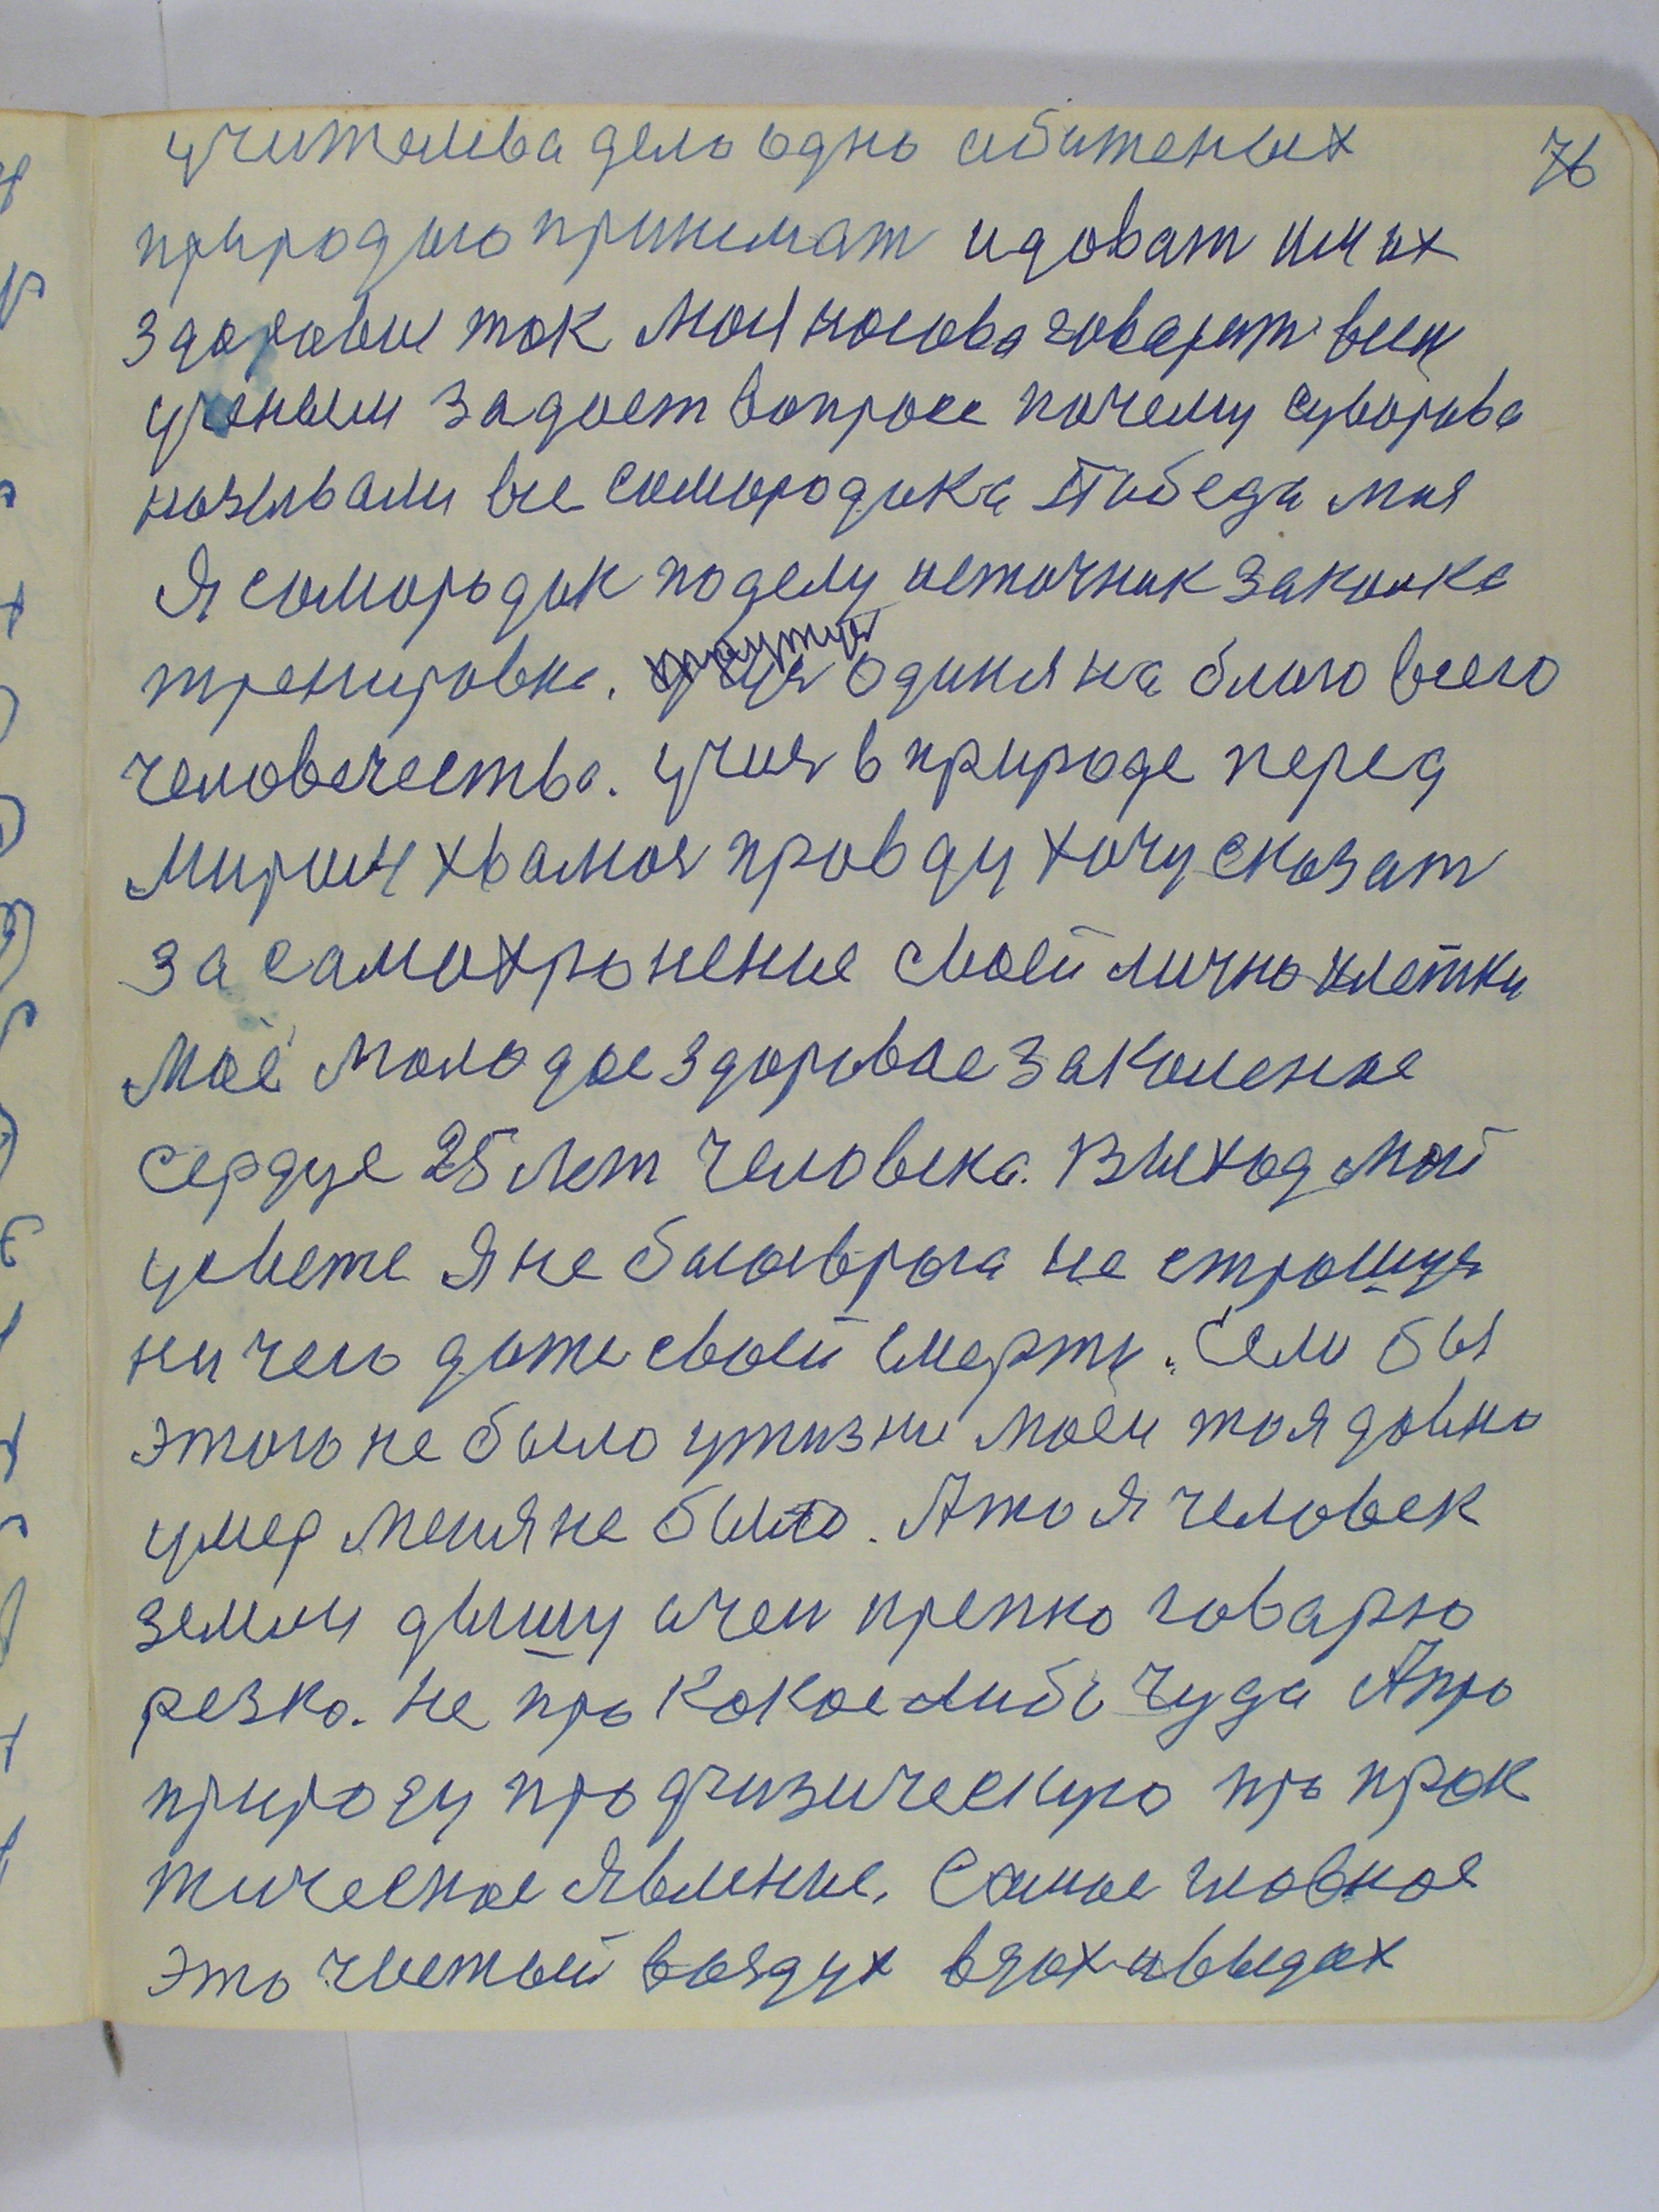 76
учителева дело одно обиженых
природою принимат и доват им их
здоровие так моя голова говарит всем
ученым задает вопросс почему суворова
называли все самородика Победа моя
Я самородик по делу источник закалка
тренировка. один я на благо всего
человечества. учися в природе перед
миром хвамоя правду хочу сказат
за самохронение своей лично клетки
Моё молодое здоровое закаленое
сердце 25 лет человека. Выход мой
у свете Я не баюсь врага не страшуся
ни чего даже своей смерти. Если бы
этого не было у жизни моей то я давно
умер меня не было. А то я человек
земли дышу очен крепко говарю
резко. не про какое либо чуда А про
природу про физическую про прак
тическое явление. Самое главное
это чистый воздух вдох и выдох